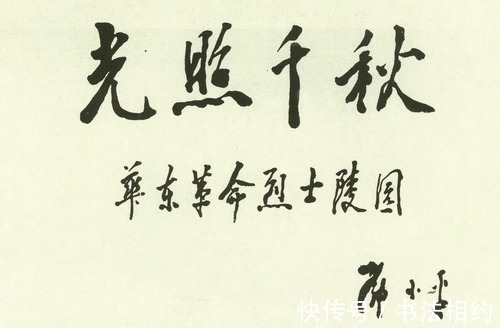 光照千秋
華东革命烈士陵园
邓小平
快传号 / 书法相约